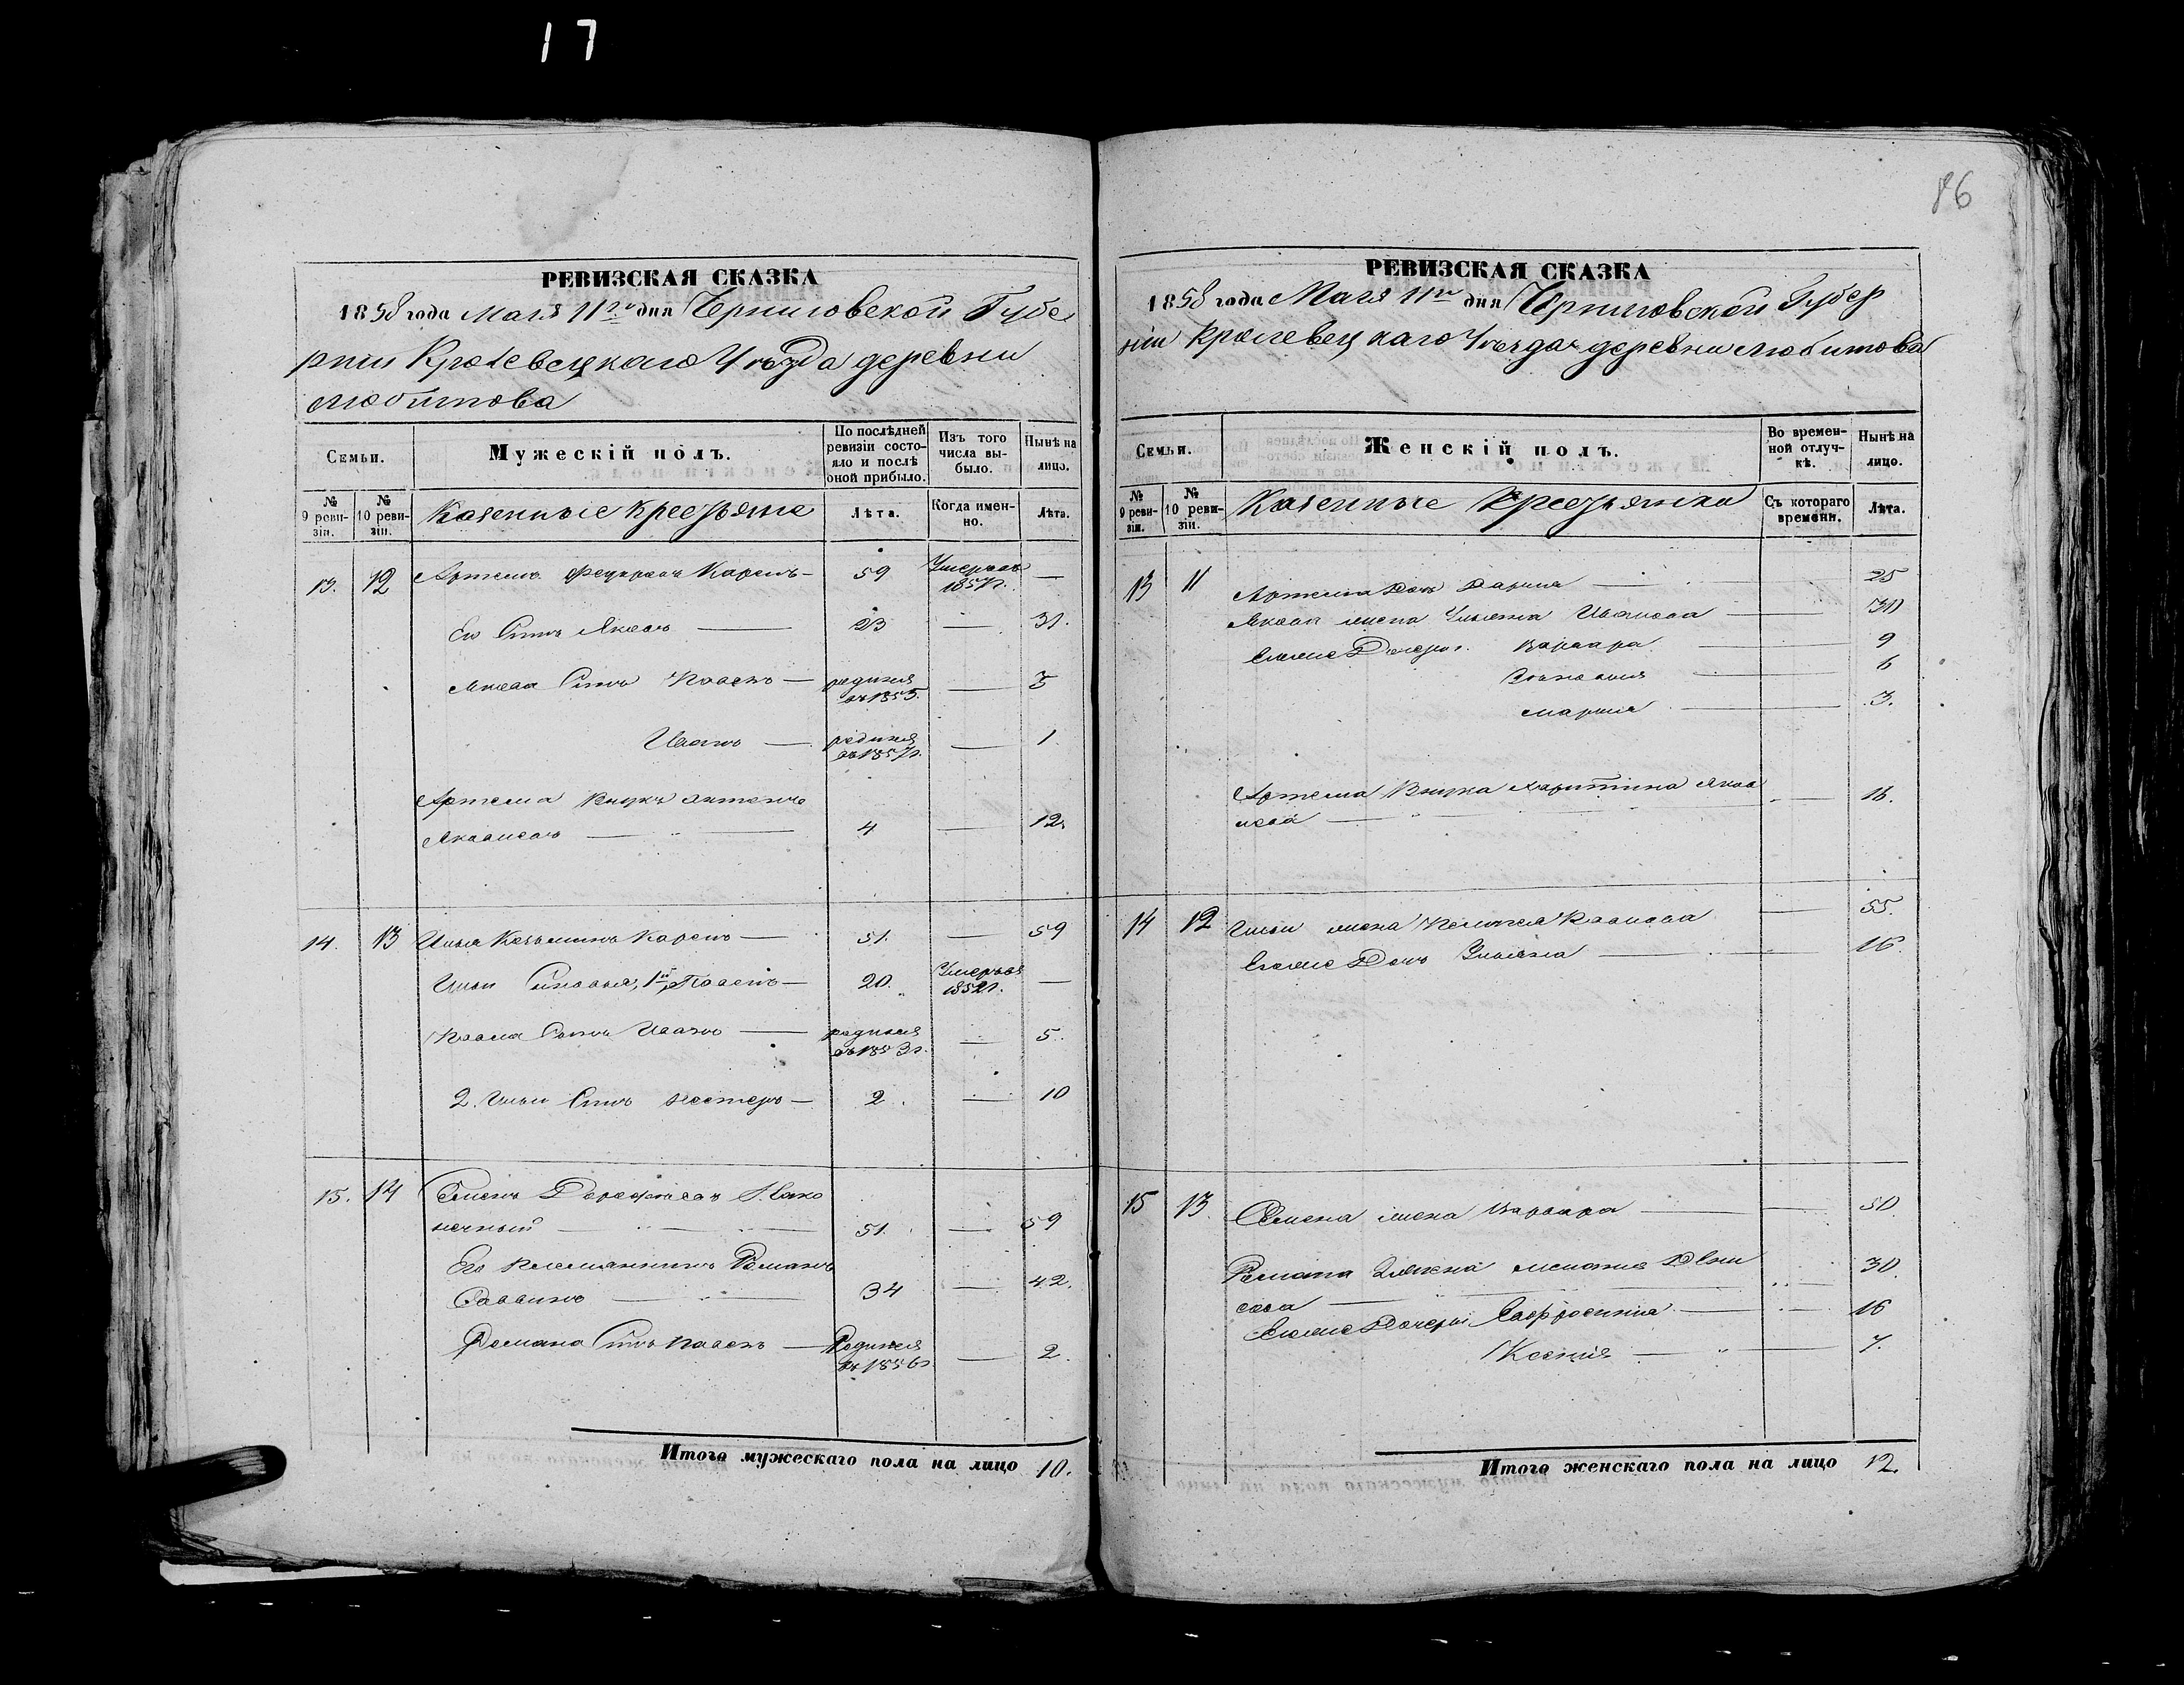 17
86
РЕВИЗСКАЯ СКАЗКА
1858 года Мая 11го дня Черниговской Губе
рніи Кролевецкаго Уѣзда деревни
Любитова
Семьи.
Мужескій полъ.
По послѣдней ревизіи состояло и послѣ оной прибыло.
Изъ того числа выбыло.
Нынѣ на лицо.
№ 9 ревизіи.
№ 10 ревизіи.
Казенные Крестьяне
Лѣта.
Когда именно.
Лѣта.
13. 12 Артемъ Федоровъ Карепъ — 59 Умеръ въ 1857г. —
Его Сынъ Яковъ — 23 — 31.
Якова Сынъ Павелъ — родился въ 1855. — 3
Иванъ — родился въ 1857г. — 1.
Артема Внукъ Антонъ
Яковлевъ — 4 — 12.
14. 13 Илья Козьминъ Карепъ — 51. — 59
Ильи Сыновья, 1й Павелъ — 20. Умеръ въ 1852г. —
Павла Сынъ Иванъ — родился въ 1853г. — 5.
2. Ильи Сынъ Нестеръ — 2. — 10
15. 14 Семенъ Дорофеевъ
нечный — 51. — 59
Его племянникъ Романъ
Саввинъ — 34 — 42.
Романа Сынъ Павелъ — Родился въ 1856г — 2.
Итого мужескаго пола на лицо 10.
РЕВИЗСКАЯ СКАЗКА
1858 года Мая 11го дня Черниговской Губер
ніи Кролевецкаго Уѣзда деревни Любитова
Семьи.
Женскій полъ.
Во временной отлучкѣ.
Нынѣ на лицо.
№ 9 ревизіи.
№ 10 ревизіи.
Казенные Крестьянки
Съ котораго времени.
Лѣта.
13 11 Артема Дочь Дарья — 25
Якова жена Ульяна Иванова — 30
Ея же Дочери. Варвара — 9
Зѣновия — 6
Марія — 3.
Артема Внука Харитина Яков
лева — 16.
14 12 Ильи жена Павлова — 55.
Ея же Дочь Ульяна — 16.
15 13. Семена жена Варвара — 50
Романа жена Меланія Дени
сова — 30
Ея же Дочери Евфросинія — 16
Ксенія — 7.
Итого женскаго пола на лицо 12.